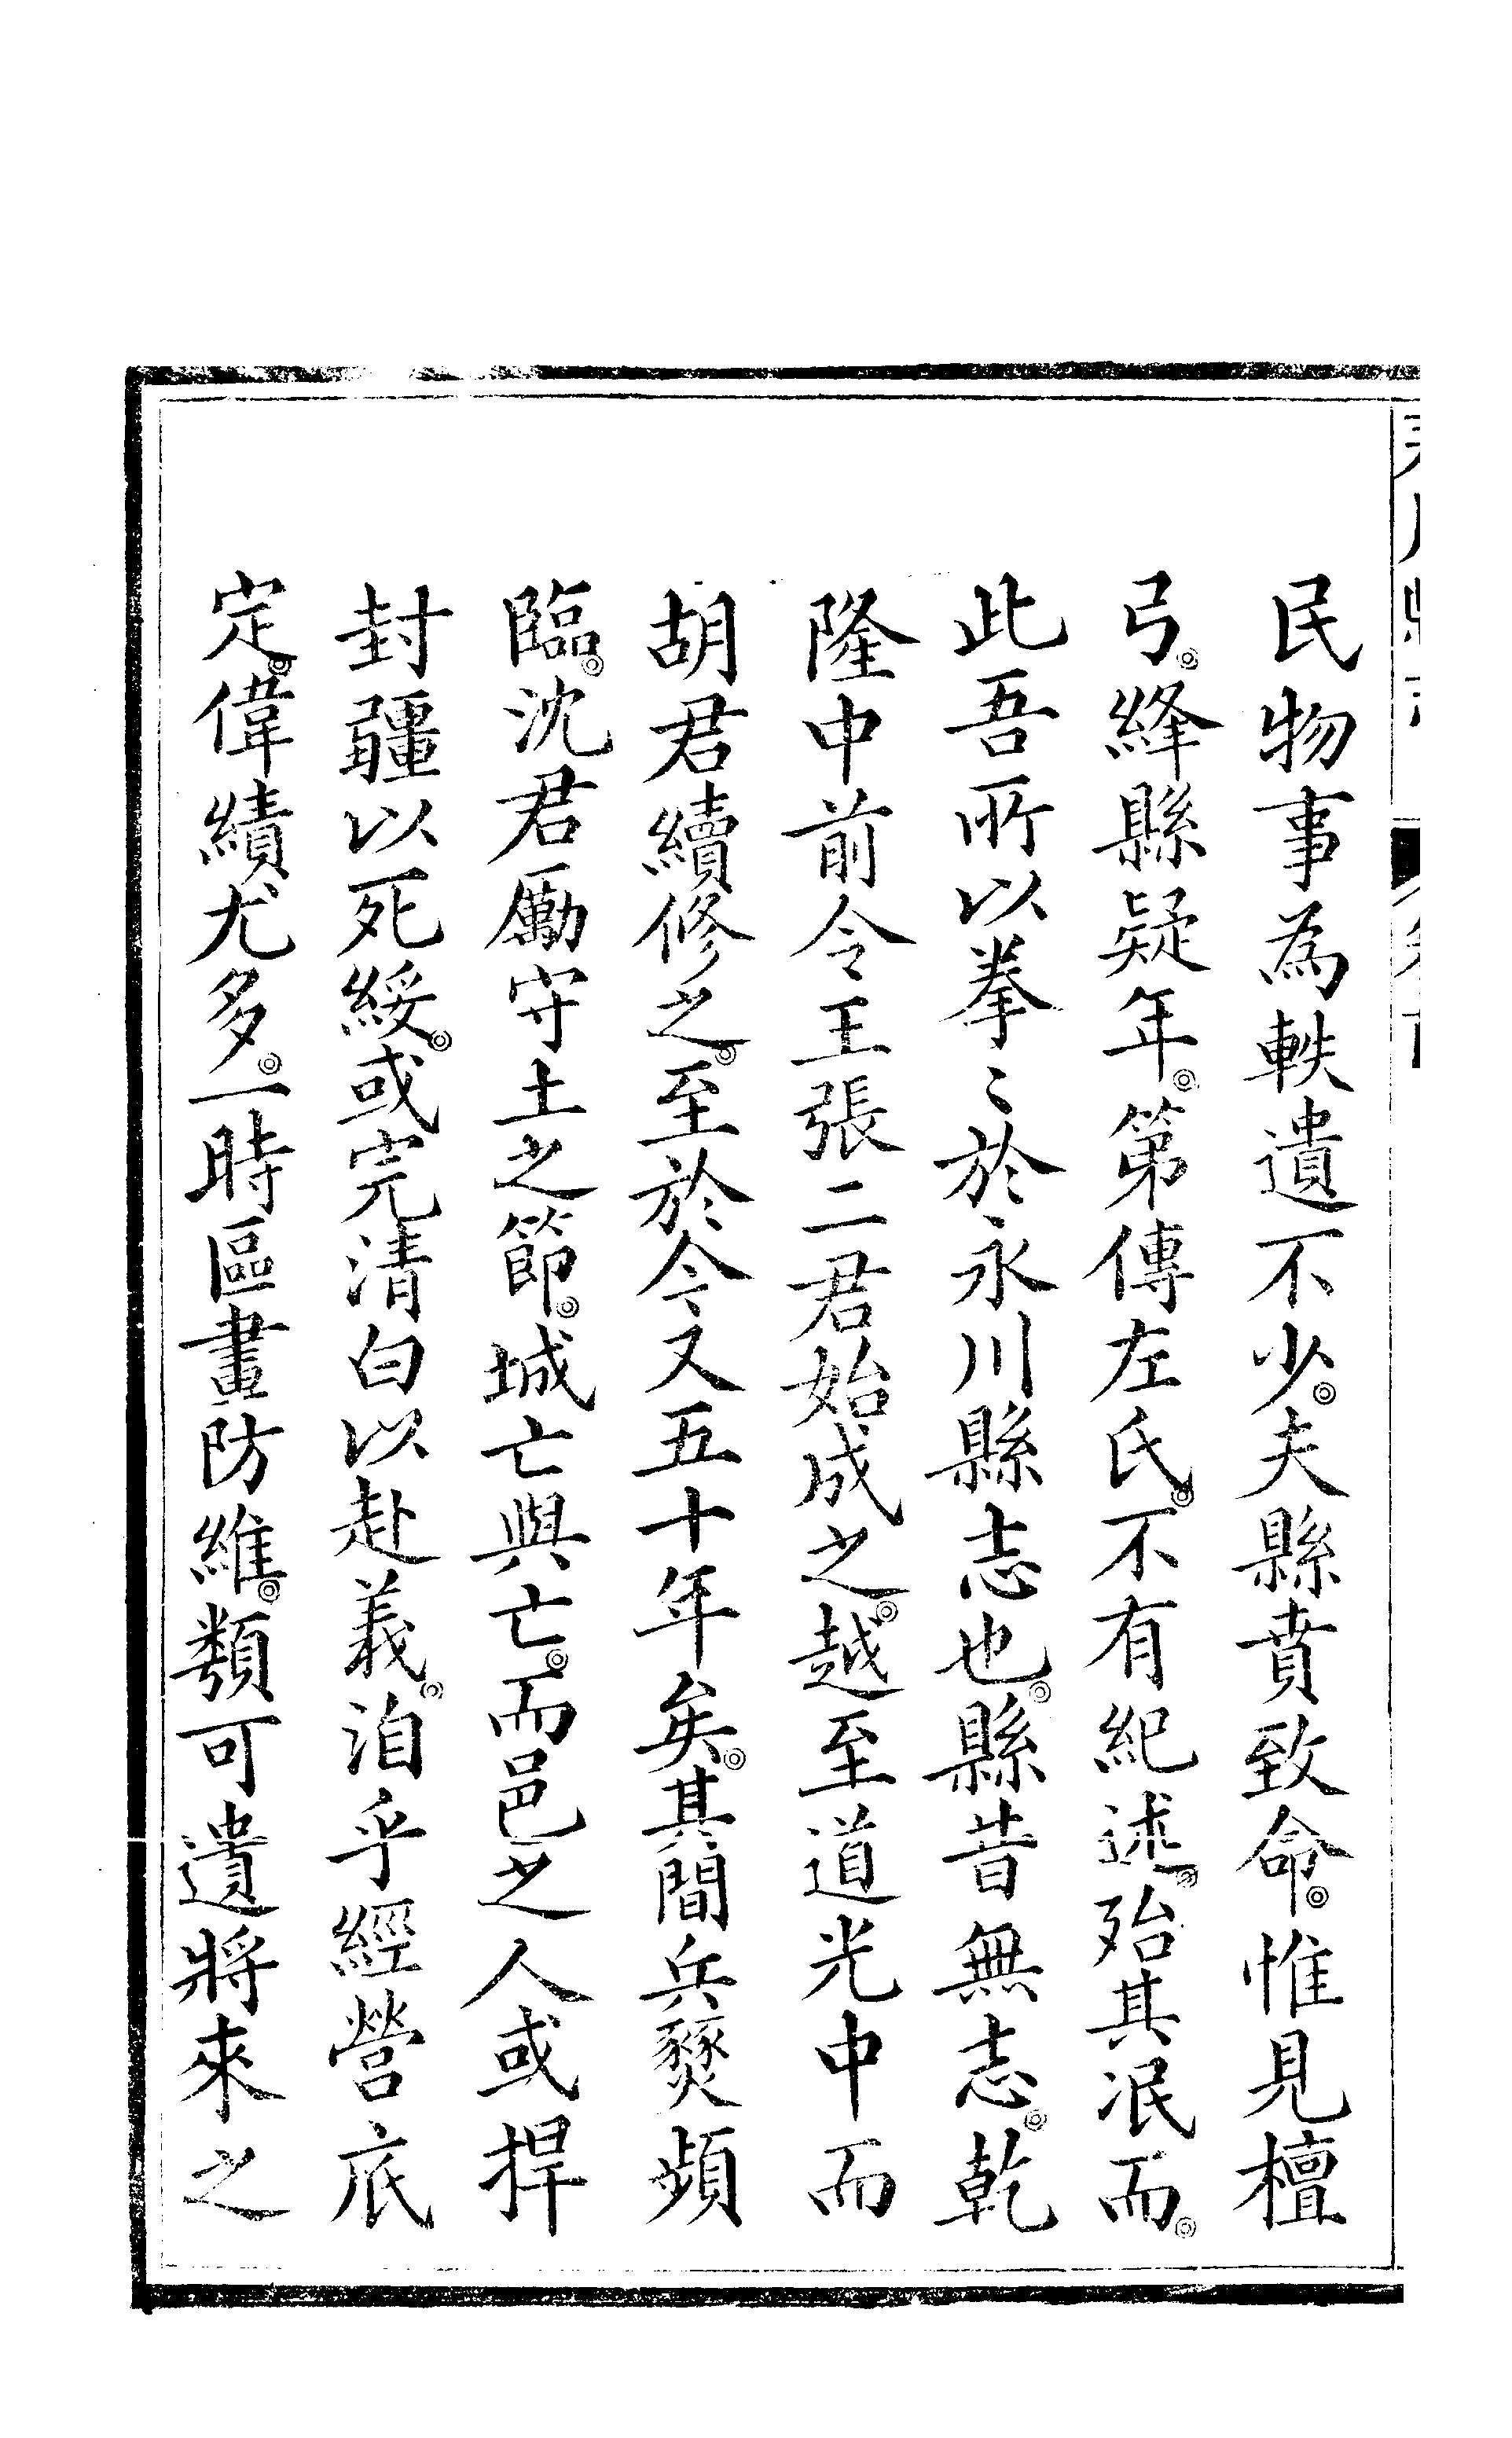 民物事為軼遺不少◎夫縣賁致命◎惟見檀
弓◎絳縣疑年◎第傳左氏◎不有紀述◎殆其泯而◎
此吾所以拳〻於永川縣志也◎縣昔無志◎乾
隆中前令王張二君始成之◎越至道光中而
胡君續修之◎至於今又五十年矣◎其間兵燹頻
臨◎沈君勵守土之節◎城亡與亡◎而邑之人或捍
封疆以死綏◎或完清白以赴義◎洎乎經營底
定◎偉績尤多◎一時區畫防維◎類可遺將來之